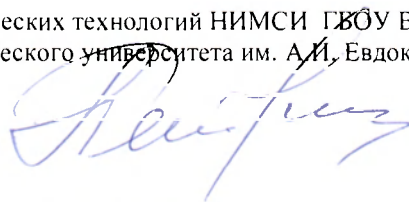 еских технологий НИМСИ ГБОУ В
еского университета им. А.И. Евдок